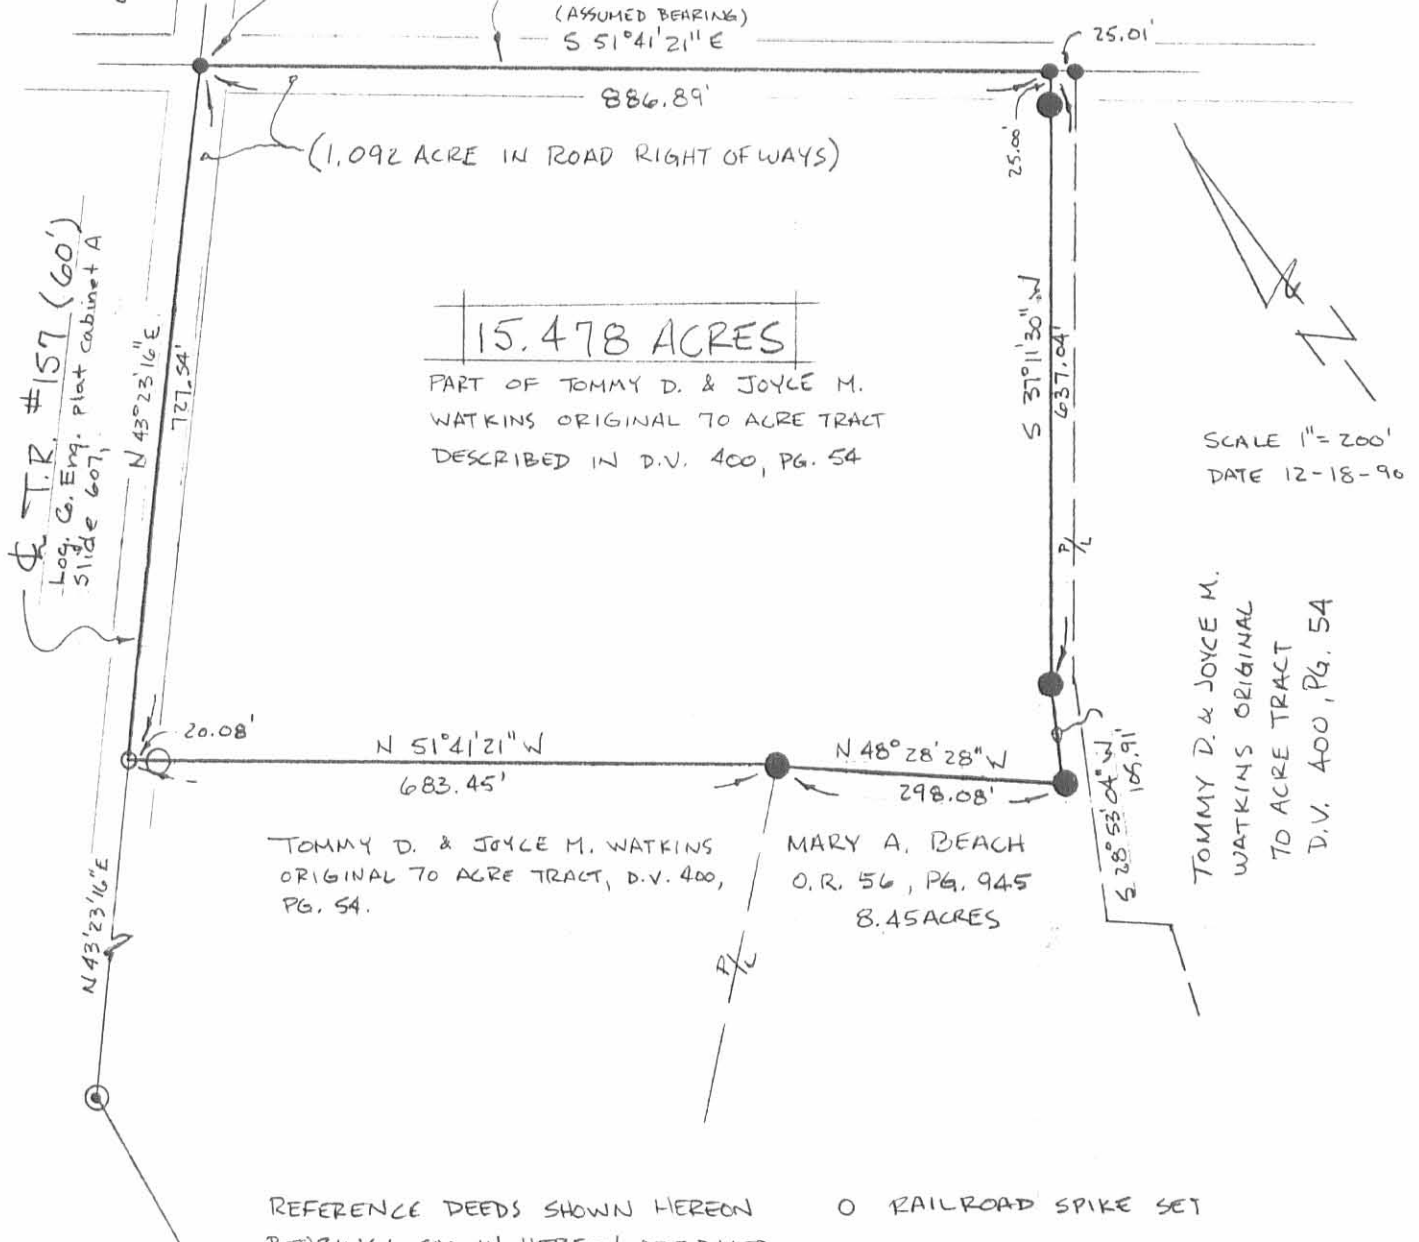 (ASSUMED BEARING)
S 51°41'21" E
25.01'
886.89'
(1.092 ACRE IN ROAD RIGHT OF WAYS)
25.00'
℄ T.R. #157 (60')
Log. Co. Eng. plat cabinet A
Slide 607,
N 43°23'16" E
727.54'
15.478 ACRES
PART OF TOMMY D. & JOYCE M.
WATKINS ORIGINAL 70 ACRE TRACT
DESCRIBED IN D.V. 400, PG. 54
S 37°11'30" W
637.04'
N
SCALE 1"= 200'
DATE 12-18-90
P/L
TOMMY D. & JOYCE M.
WATKINS ORIGINAL
70 ACRE TRACT
D.V. 400, PG. 54
20.08'
N 51°41'21" W
683.45'
N 48°28'28" W
298.08'
S 28°53'04" W
105.91'
TOMMY D. & JOYCE M. WATKINS
ORIGINAL 70 ACRE TRACT, D.V. 400,
PG. 54.
MARY A. BEACH
O.R. 56, PG. 945
8.45 ACRES
N 43°23'16" E
P/L
REFERENCE DEEDS SHOWN HEREON
O RAILROAD SPIKE SET